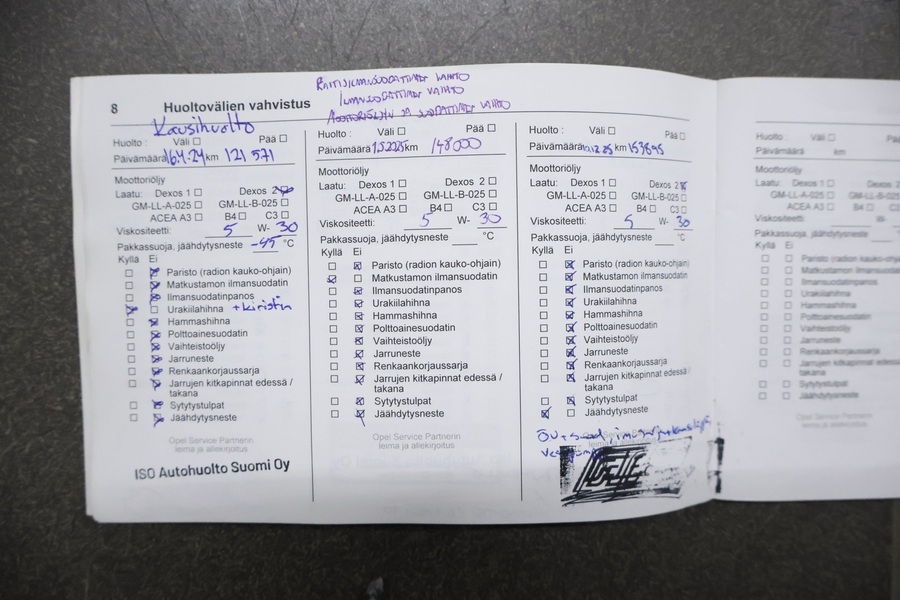 8 Huoltovälien vahvistus
RAITISILMANSUODATTIMEN VAIHTO
ILMANSUODATTIMEN VAIHTO
MOOTTORIÖLJYN JA SUODATTIMEN VAIHTO
Kausihuolto
Huolto : Väli ☐ Pää ☐
Päivämäärä 16.4.24 km 121 571
Moottoriöljy
Laatu: Dexos 1 ☐ Dexos 2 ☒
GM-LL-A-025 ☐ GM-LL-B-025 ☐
ACEA A3 ☐ B4 ☐ C3 ☐
Viskositeetti: 5 W- 30
Pakkassuoja, jäähdytysneste -45 °C
Kyllä Ei
☐ ☒ Paristo (radion kauko-ohjain)
☐ ☒ Matkustamon ilmansuodatin
☐ ☒ Ilmansuodatinpanos
☒ ☐ Urakiilahihna + kiristin
☐ ☒ Hammashihna
☐ ☒ Polttoainesuodatin
☐ ☒ Vaihteistoöljy
☐ ☒ Jarruneste
☐ ☒ Renkaankorjaussarja
☐ ☒ Jarrujen kitkapinnat edessä /
takana
☐ ☒ Sytytystulpat
☐ ☒ Jäähdytysneste
Opel Service Partnerin
leima ja allekirjoitus
ISO Autohuolto Suomi Oy
Huolto : Väli ☐ Pää ☐
Päivämäärä 1.5.2025 km 148000
Moottoriöljy
Laatu: Dexos 1 ☐ Dexos 2 ☐
GM-LL-A-025 ☐ GM-LL-B-025 ☐
ACEA A3 ☐ B4 ☐ C3 ☐
Viskositeetti: 5 W- 30
Pakkassuoja, jäähdytysneste °C
Kyllä Ei
☐ ☒ Paristo (radion kauko-ohjain)
☒ ☐ Matkustamon ilmansuodatin
☐ ☒ Ilmansuodatinpanos
☐ ☒ Urakiilahihna
☐ ☒ Hammashihna
☐ ☒ Polttoainesuodatin
☐ ☒ Vaihteistoöljy
☐ ☒ Jarruneste
☐ ☒ Renkaankorjaussarja
☐ ☒ Jarrujen kitkapinnat edessä /
takana
☐ ☒ Sytytystulpat
☐ ☒ Jäähdytysneste
Opel Service Partnerin
leima ja allekirjoitus
Huolto : Väli ☐ Pää ☐
Päivämäärä 10.12.25 km 153895
Moottoriöljy
Laatu: Dexos 1 ☐ Dexos 2 ☒
GM-LL-A-025 ☐ GM-LL-B-025 ☐
ACEA A3 ☐ B4 ☐ C3 ☐
Viskositeetti: 5 W- 30
Pakkassuoja, jäähdytysneste °C
Kyllä Ei
☐ ☒ Paristo (radion kauko-ohjain)
☐ ☒ Matkustamon ilmansuodatin
☐ ☒ Ilmansuodatinpanos
☐ ☒ Urakiilahihna
☐ ☒ Hammashihna
☐ ☒ Polttoainesuodatin
☐ ☒ Vaihteistoöljy
☐ ☒ Jarruneste
☐ ☒ Renkaankorjaussarja
☐ ☒ Jarrujen kitkapinnat edessä /
takana
☐ ☒ Sytytystulpat
☒ ☐ Jäähdytysneste
Huolto : Väli ☐ Pää ☐
Päivämäärä km
Moottoriöljy
Laatu: Dexos 1 ☐ Dexos
GM-LL-A-025 ☐ GM-LL-B-025
ACEA A3 ☐ B4 ☐ C3
Viskositeetti: W-
Pakkassuoja, jäähdytysneste
Kyllä Ei
☐ ☐ Paristo (radion kauko-ohjain
☐ ☐ Matkustamon ilmansuodatin
☐ ☐ Ilmansuodatinpanos
☐ ☐ Urakiilahihna
☐ ☐ Hammashihna
☐ ☐ Polttoainesuodatin
☐ ☐ Vaihteistoöljy
☐ ☐ Jarruneste
☐ ☐ Renkaankorjaussarja
☐ ☐ Jarrujen kitkapinnat edessä
takana
☐ ☐ Sytytystulpat
☐ ☐ Jäähdytysneste
Opel Service Partnerin
leima ja allekirjoitus